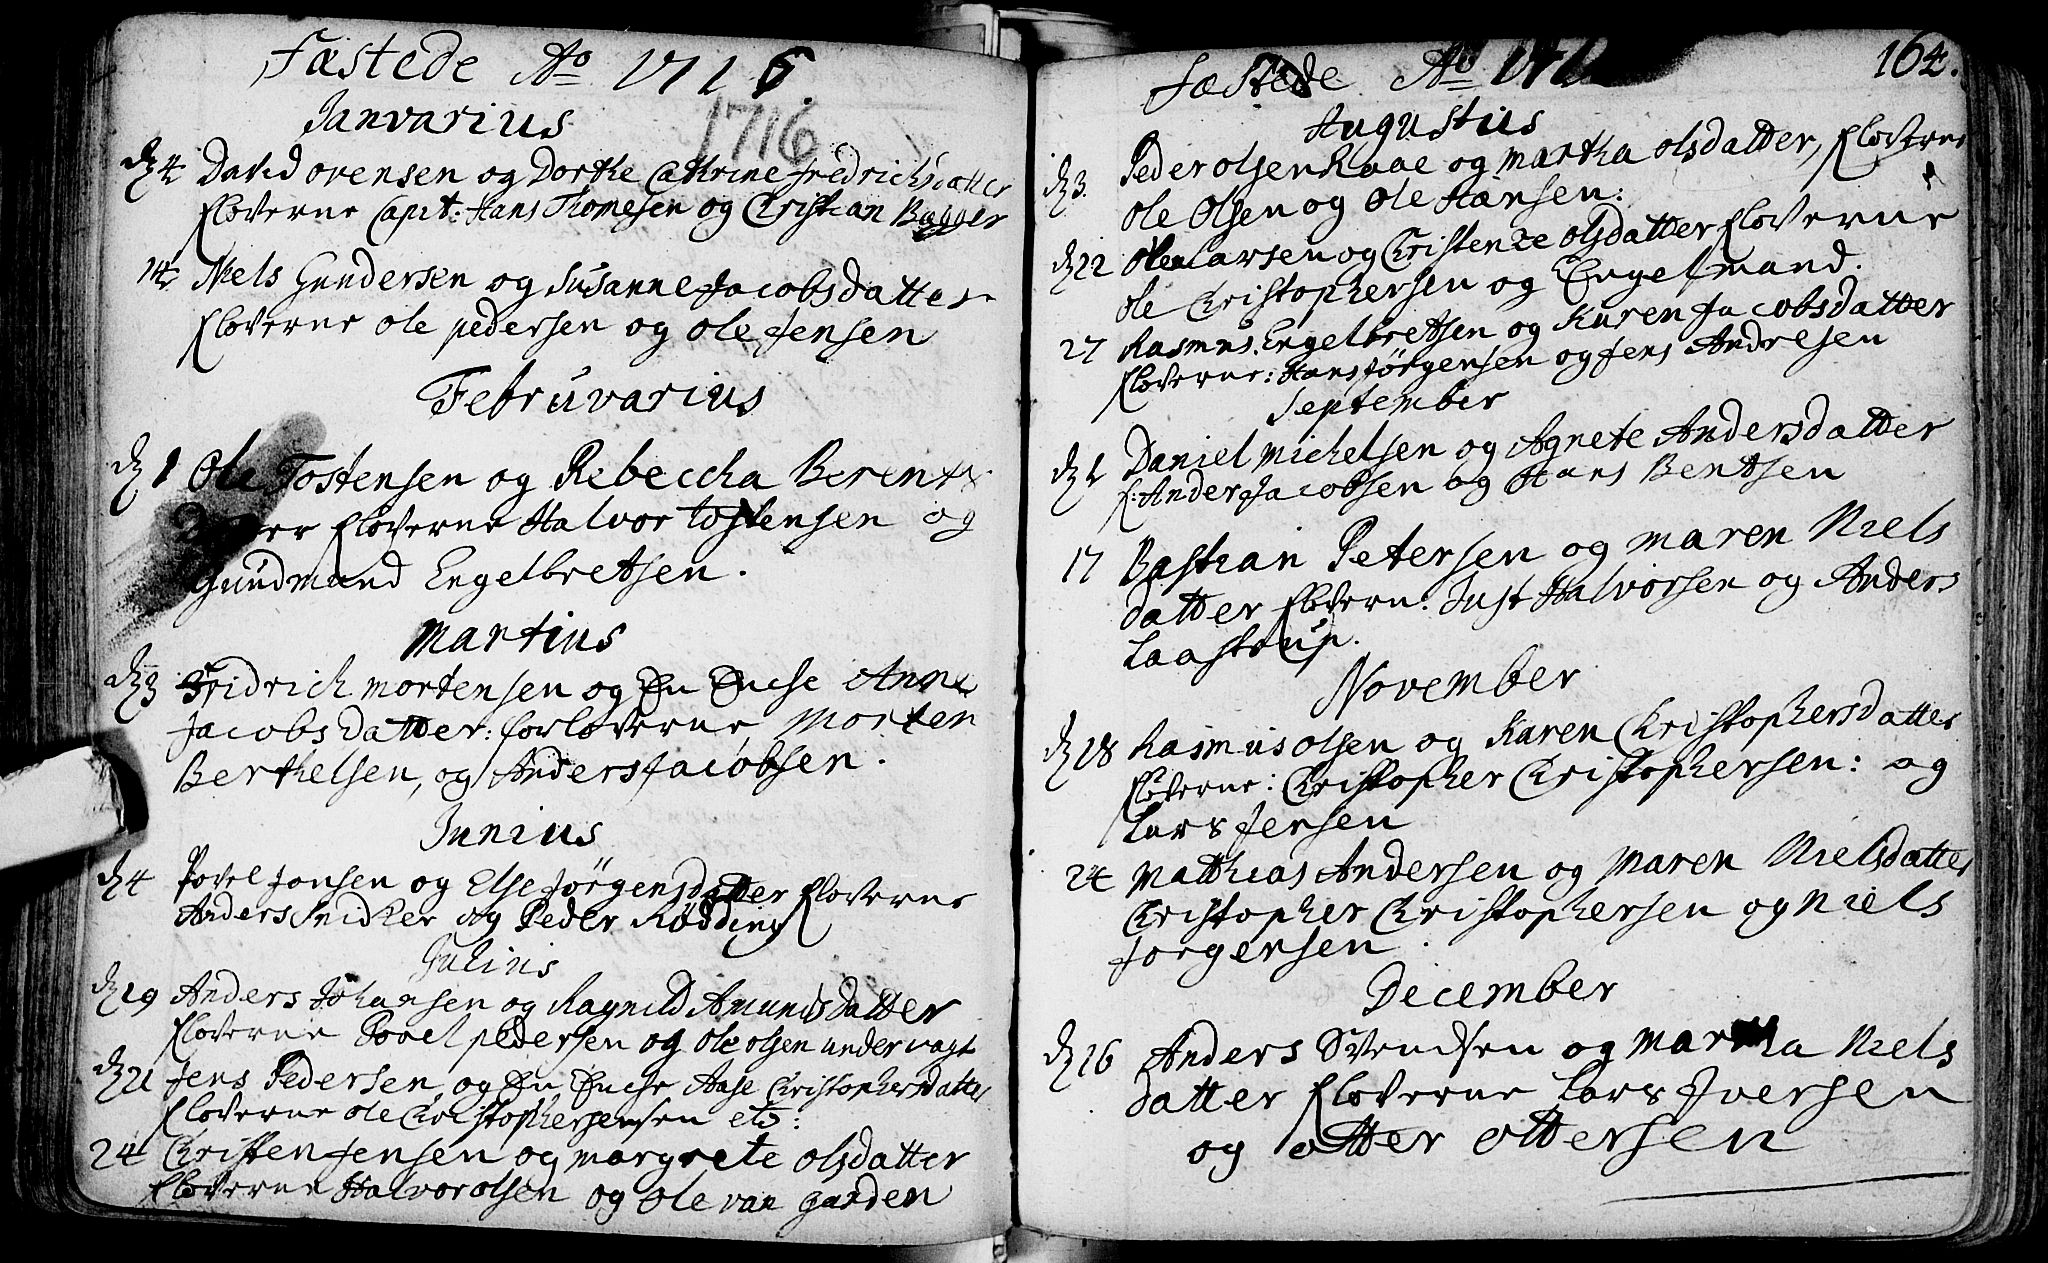 Fæstede Ao 1716.
1716
Ianvarius
d 4 David ovensen og Dorthe Cathrine fredrichsdatter
Floverne Capit: Hans Thomesen og Christian Bugger
14 Niels Gundersen og Susanne Jacobsdatter
Floverne ole pedersen og ole Jensen
Februvarius
d 1 Ole Tostensen og Rebeccha Berents
Floverne Halvor tostensen og
Gundmand Engelbretsen.
Martius
d 3 Fridrich mortensen og En Encke Anne
Jacobsdatter: forloverne, Morten
Berthelsen, og Anders Jacobsen.
Iunius
d 4 Povel Jonsen og Else Jørgensdatter Floverne
Anders Snidker og Peder Rødding
Julius
d 19 Anders Johansen og Ragnild Amundsdatter
Floverne Povel pedersen og ole olsen under vagt
d 21 Jens Pedersen, og En Encke Aase Christophersdatter
Floverne ole Christophersensen etc:
24 Christen Jensen og margrete olsdatter
Floverne Halvor olsen og ole van garden
164.
Fæstede Ao
Augustius
d 3. Peder olsen Raae og martha olsdatter, Floverne
ole olsen og ole Hansen:
d 22 olen Larsen og Christenze olsdatter Floverne
ole Christophersen og Engelmand.
27 Rasmus Engelbretsen og Karen Jacobsdatter
Floverne: Hans Jørgensen og Jens Andresen
September
d 1 Daniel michelsen og Agnete Andersdatter
f: Anders Jacobsen og Hans Bentsen
17 Bastian Petersen og maren Niels
datter Flovern: Just Halvorsen og Anders
Laastrup.
November
d 18 Rasmus olsen og Karen Christophersdatter
Floverne: Christopher Christophersen: og
Lars Jensen
24 Matthias Andersen og Maren Nielsdatter
Christopher Christophersen og Niels
Jorgensen.
December
d 26 Anders Svendsen og Martha Niels
datter Floverne Lars Iversen
og otter ottersen